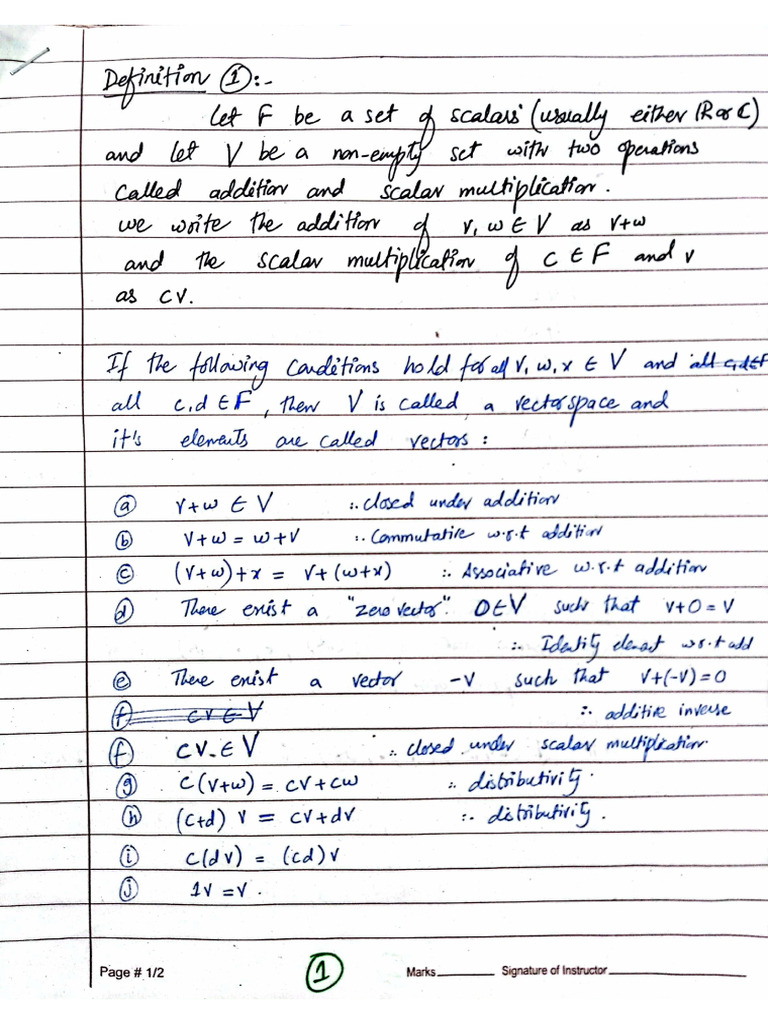 Definition ①:-
Let F be a set of scalars (usually either ℝ or ℂ)
and let V be a non-empty set with two operations
called addition and scalar multiplication.
we write the addition of v, w ∈ V as v+w
and the scalar multiplication of c ∈ F and v
as cv.
If the following conditions hold for all v, w, x ∈ V and all c,d ∈ F
all c,d ∈ F, then V is called a vector space and
it's elements are called vectors :
ⓐ v+w ∈ V ∴ closed under addition
ⓑ v+w = w+v ∴ Commutative w.r.t addition
ⓒ (v+w)+x = v+(w+x) ∴ Associative w.r.t addition
ⓓ There exist a "zero vector" 0∈V such that v+0=v
∴ Identity element w.r.t add
ⓔ There exist a vector -v such that v+(-v)=0
ⓕ cv ∈ V ∴ additive inverse
ⓕ cv ∈ V ∴ closed under scalar multiplication.
ⓖ c(v+w) = cv+cw ∴ distributivity.
ⓗ (c+d) v = cv+dv ∴ distributivity.
ⓘ c(dv) = (cd)v
ⓙ 1v =v.
Page # 1/2 ① Marks Signature of Instructor